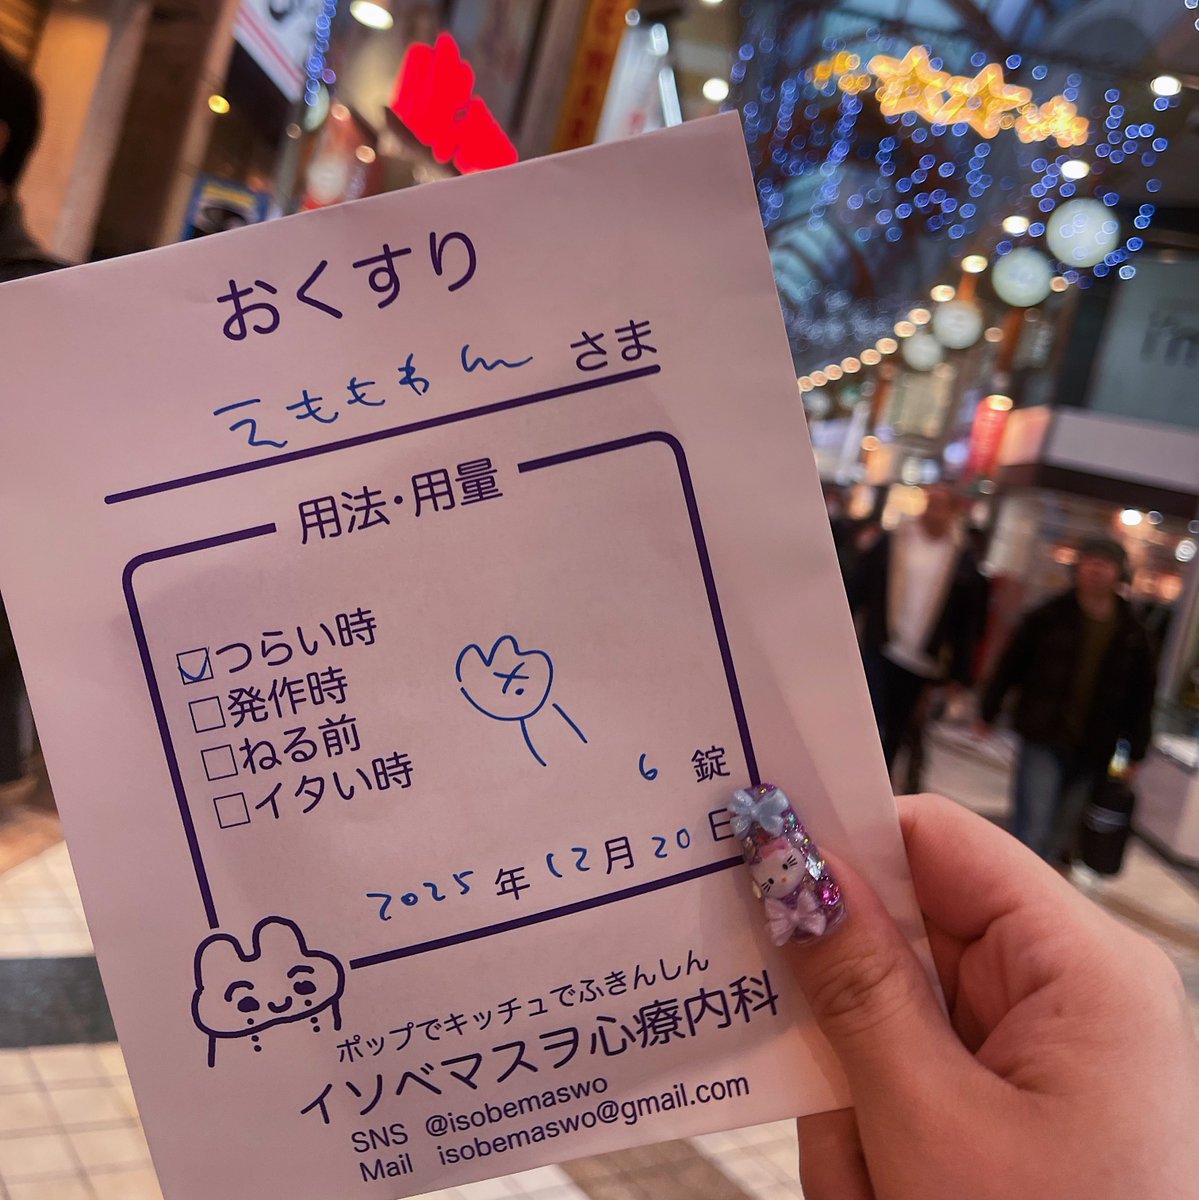 おくすり
えももわん さま
用法・用量
つらい時
発作時
ねる前
イタい時
6 錠
2025 年 12 月 20 日
ポップでキッチュでふきんしん
イソベマスヲ心療内科
SNS @isobemaswo
Mail isobemaswo@gmail.com